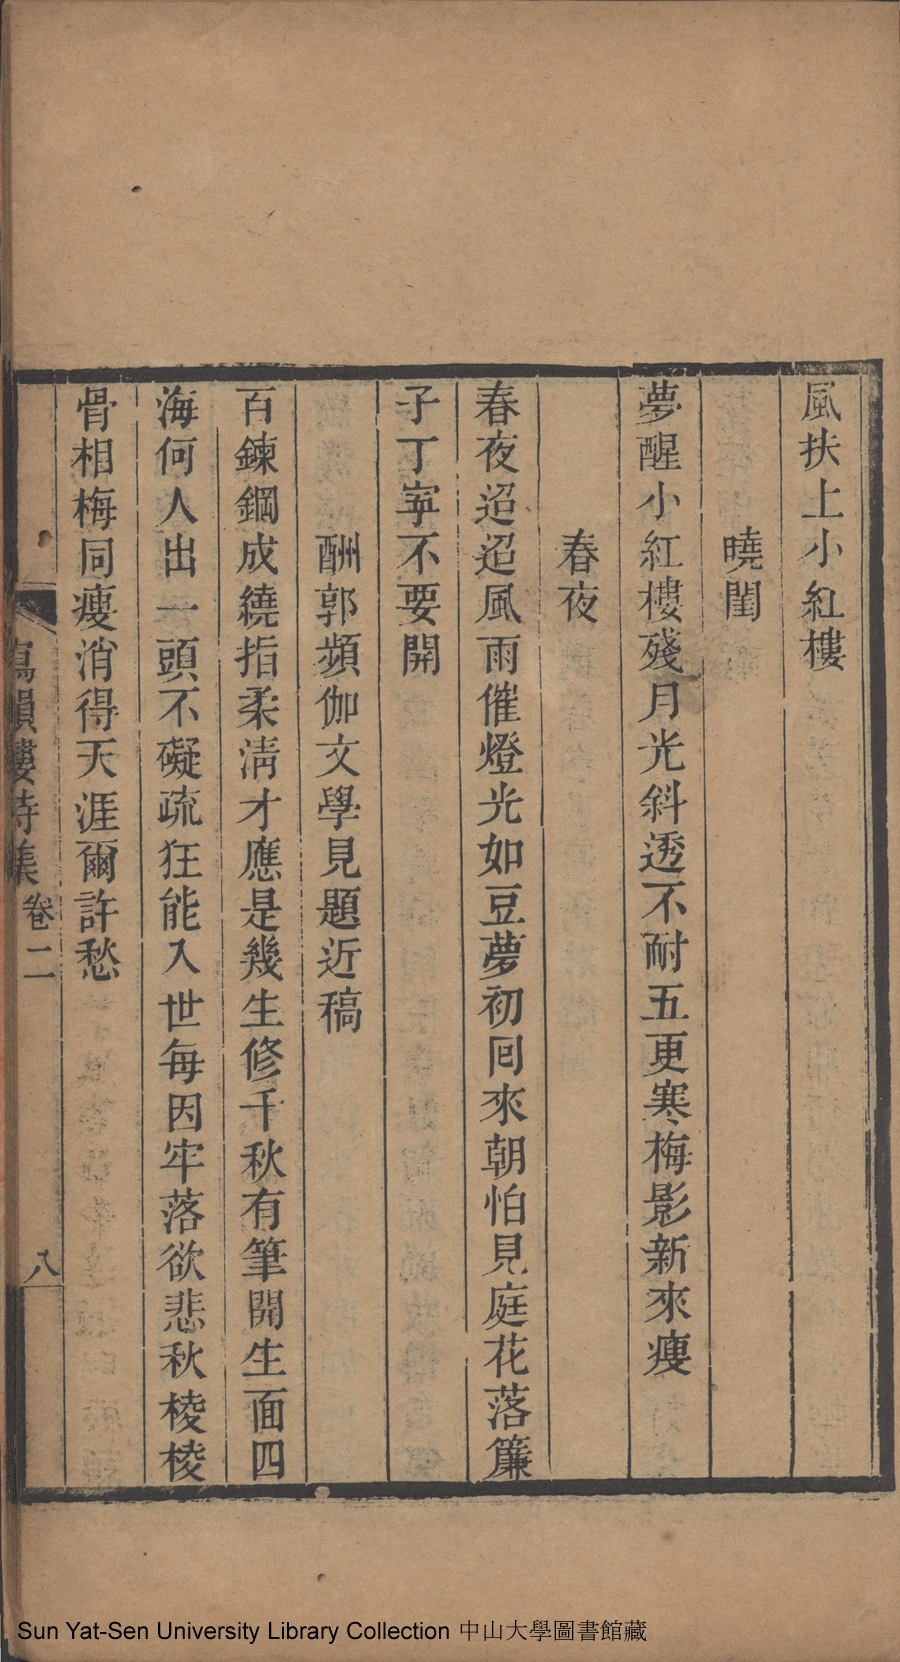 風扶上小紅樓
曉閨
夢醒小紅樓殘月光斜透不耐五更寒梅影新來瘦
春夜
春夜迢迢風雨催燈光如豆夢初囘來朝怕見庭花落簾
子丁寧不要開
酬郭頻伽文學見題近稿
百鍊鋼成繞指柔淸才應是幾生修千秋有筆開生面四
海何人出一頭不礙疏狂能入世每因牢落欲悲秋棱棱
骨相梅同瘦消得天涯爾許愁
寫韻樓詩集 卷二 八
Sun Yat-Sen University Library Collection 中山大學圖書館藏